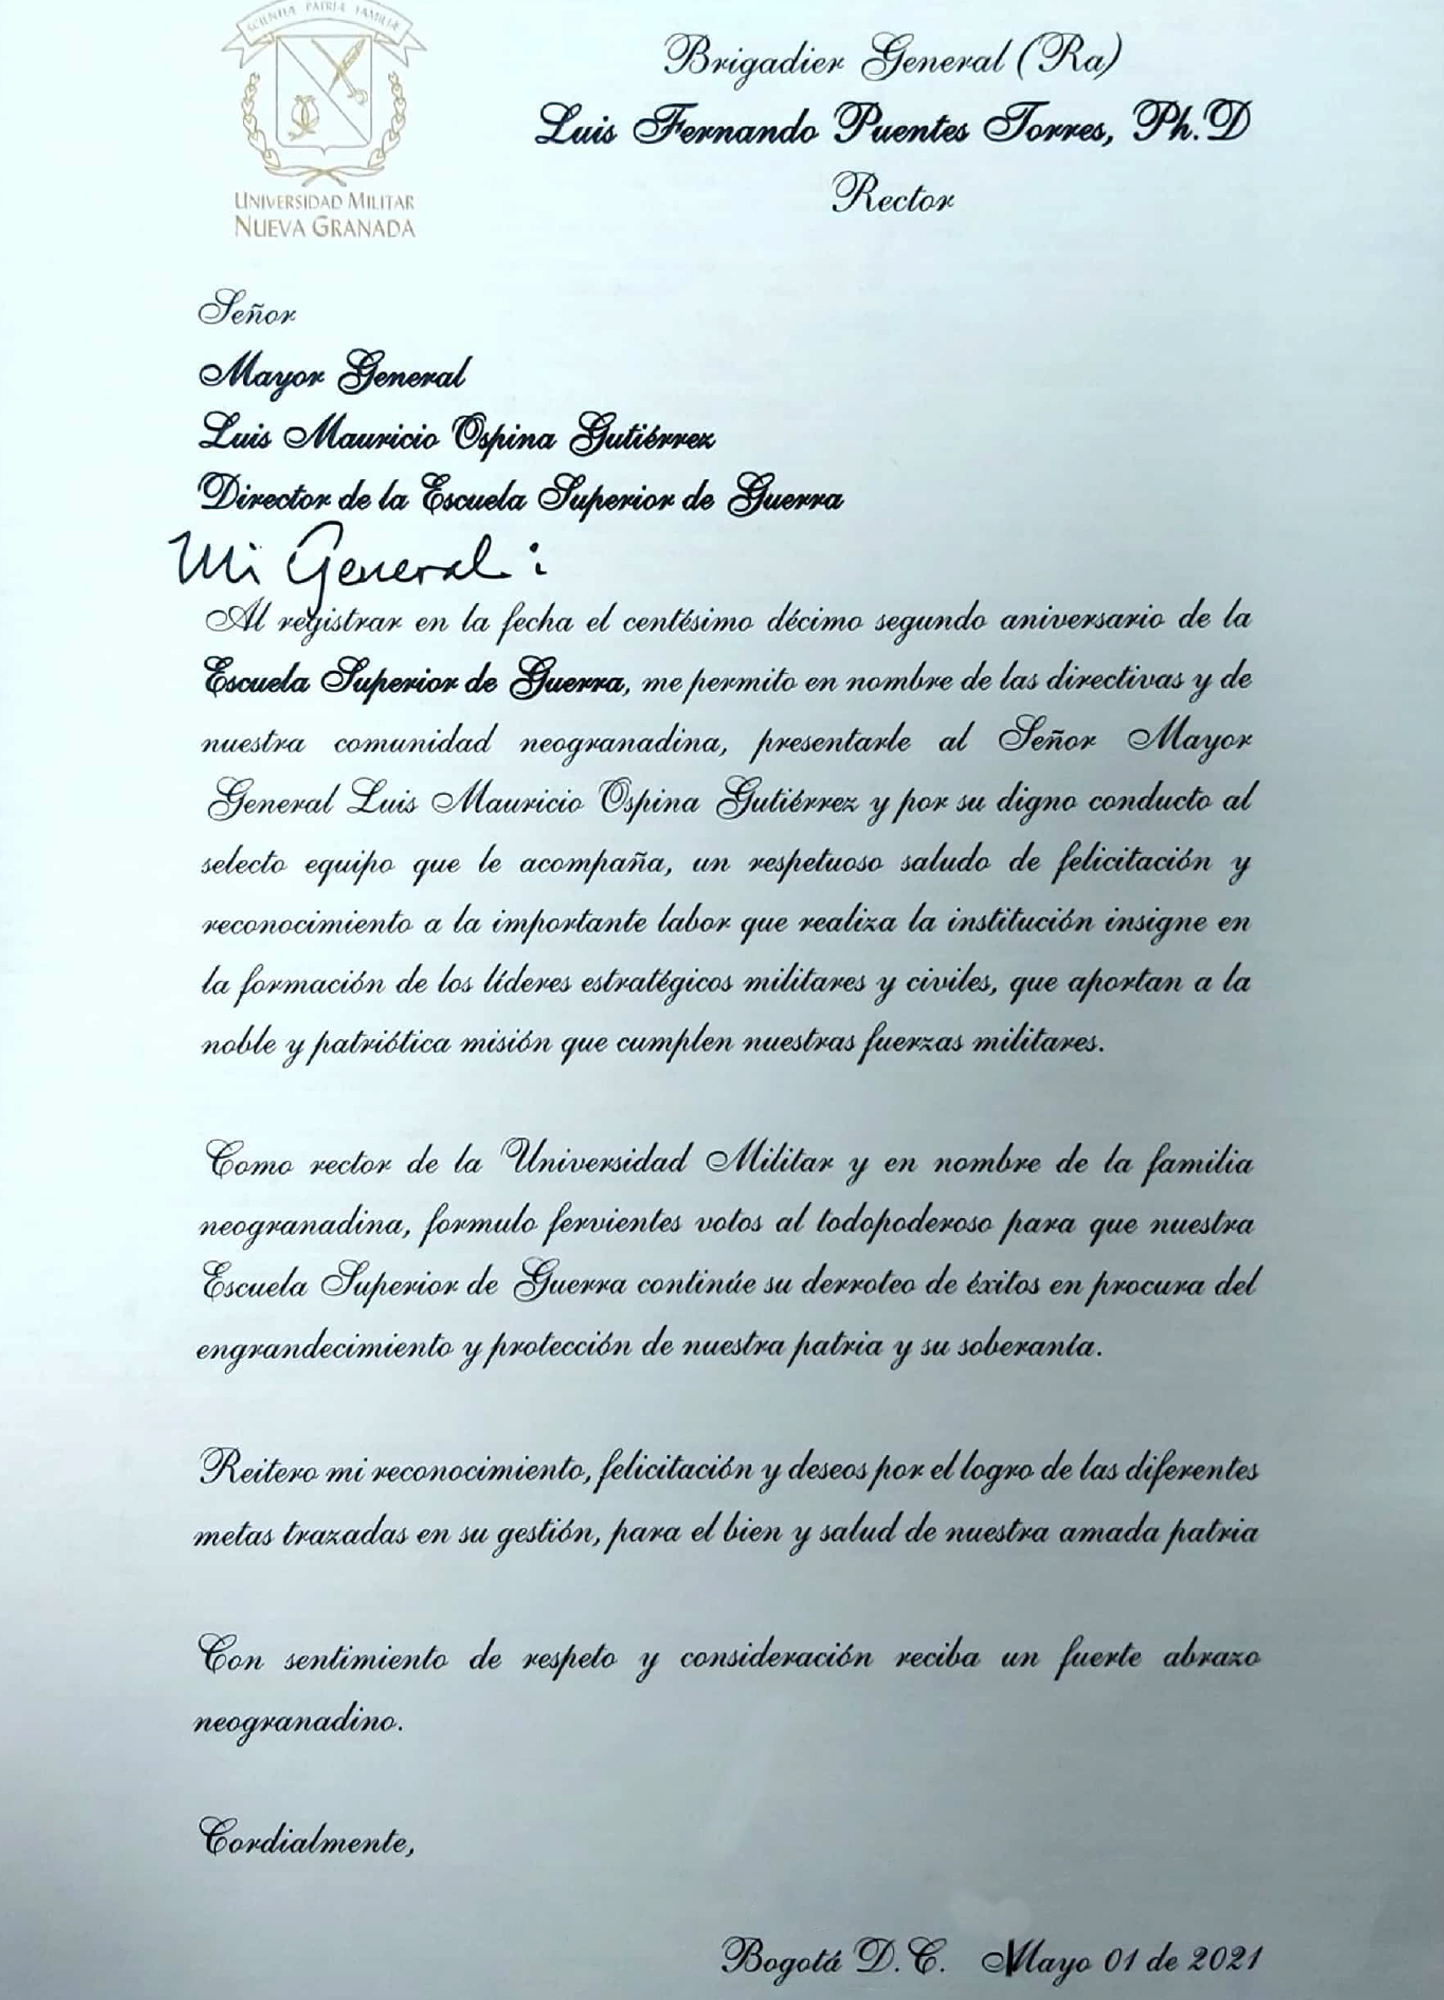 SCIENTIA PATRIA FAMILIA
UNIVERSIDAD MILITAR
NUEVA GRANADA
Brigadier General (Ra)
Luis Fernando Puentes Torres, Ph.D
Rector
Señor
Mayor General
Luis Mauricio Ospina Gutiérrez
Director de la Escuela Superior de Guerra
Mi General:
Al registrar en la fecha el centésimo décimo segundo aniversario de la
Escuela Superior de Guerra, me permito en nombre de las directivas y de
nuestra comunidad neogranadina, presentarle al Señor Mayor
General Luis Mauricio Ospina Gutiérrez y por su digno conducto al
selecto equipo que le acompaña, un respetuoso saludo de felicitación y
reconocimiento a la importante labor que realiza la institución insigne en
la formación de los líderes estratégicos militares y civiles, que aportan a la
noble y patriótica misión que cumplen nuestras fuerzas militares.
Como rector de la Universidad Militar y en nombre de la familia
neogranadina, formulo fervientes votos al todopoderoso para que nuestra
Escuela Superior de Guerra continúe su derroteo de éxitos en procura del
engrandecimiento y protección de nuestra patria y su soberanía.
Reitero mi reconocimiento, felicitación y deseos por el logro de las diferentes
metas trazadas en su gestión, para el bien y salud de nuestra amada patria
Con sentimiento de respeto y consideración reciba un fuerte abrazo
neogranadino.
Cordialmente,
Bogotá D.C. Mayo 01 de 2021